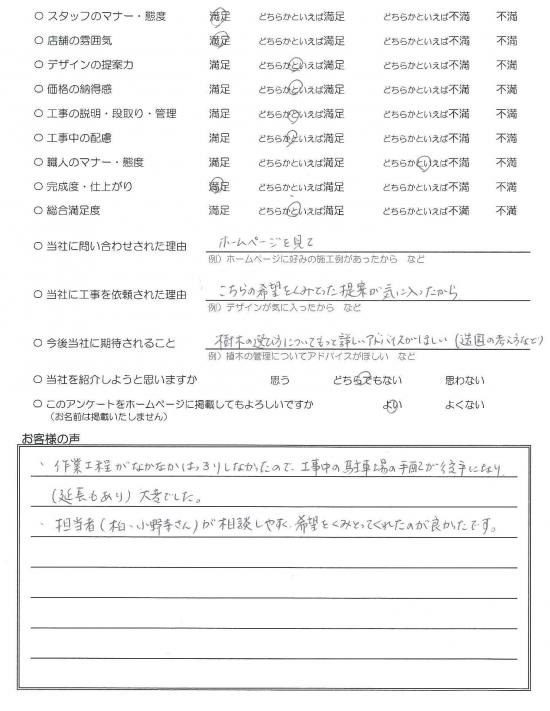 ○ スタッフのマナー・態度 満足 どちらかといえば満足 どちらかといえば不満 不満
○ 店舗の雰囲気 満足 どちらかといえば満足 どちらかといえば不満 不満
○ デザインの提案力 満足 どちらかといえば満足 どちらかといえば不満 不満
○ 価格の納得感 満足 どちらかといえば満足 どちらかといえば不満 不満
○ 工事の説明・段取り・管理 満足 どちらかといえば満足 どちらかといえば不満 不満
○ 工事中の配慮 満足 どちらかといえば満足 どちらかといえば不満 不満
○ 職人のマナー・態度 満足 どちらかといえば満足 どちらかといえば不満 不満
○ 完成度・仕上がり 満足 どちらかといえば満足 どちらかといえば不満 不満
○ 総合満足度 満足 どちらかといえば満足 どちらかといえば不満 不満
○ 当社に問い合わせされた理由 ホームページを見て
例）ホームページに好みの施工例があったから など
○ 当社に工事を依頼された理由 こちらの希望をくみとった提案が気に入ったから
例）デザインが気に入ったから など
○ 今後当社に期待されること 樹木の選び方についてもっと詳しいアドバイスがほしい（造園の考え方など）
例）植木の管理についてアドバイスがほしい など
○ 当社を紹介しようと思いますか 思う どちらでもない 思わない
○ このアンケートをホームページに掲載してもよろしいですか よい よくない
（お名前は掲載いたしません）
お客様の声
・ 作業工程がなかなかはっきりしなかったので、工事中の駐車場の手配が後手になり
（延長もあり）大変でした。
・ 担当者（柏・小野寺さん）が相談しやすく、希望をくみとってくれたのが良かったです。